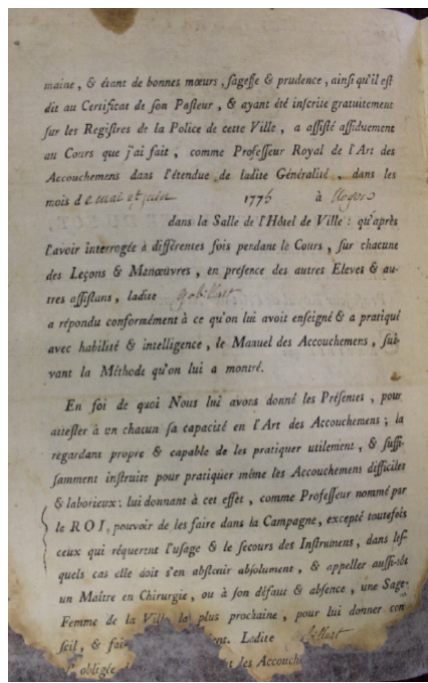 maine, & étant de bonnes mœurs, sagesse & prudence, ainsi qu'il est
dit au Certificat de son Pasteur, & ayant été inscrite gratuitement
sur les Registres de la Police de cette Ville, a assisté assiduement
au Cours que j'ai fait, comme Professeur Royal de l'Art des
Accouchemens dans l'étendue de ladite Généralité, dans les
mois de mai et juin 1775 à
dans la Salle de l'Hôtel de Ville : qu'après
l'avoir interrogée à différentes fois pendant le Cours, sur chacune
des Leçons & Manœuvres, en présence des autres Eleves & au-
tres assistans, ladite Gobillart
a répondu conformément à ce qu'on lui avoit enseigné & a pratiqué
avec habilité & intelligence, le Manuel des Accouchemens, sui-
vant la Méthode qu'on lui a montré.
En foi de quoi Nous lui avons donné les Présentes, pour
attester à un chacun sa capacité en l'Art des Accouchemens ; la
regardant propre & capable de les pratiquer utilement, & suffi-
samment instruite pour pratiquer même les Accouchemens difficiles
& laborieux : lui donnant à cet effet, comme Professeur nommé par
le ROI, pouvoir de les faire dans la Campagne, excepté toutefois
ceux qui réquerent l'usage & le secours des Instrumens, dans les-
quels cas elle doit s'en abstenir absolument, & appeller aussi-tôt
un Maître en Chirurgie, ou à son défaut & absence, une Sage-
Femme de la Ville la plus prochaine, pour lui donner con-
seil, & ent. Ladite Gobillart
obligée les Accouch